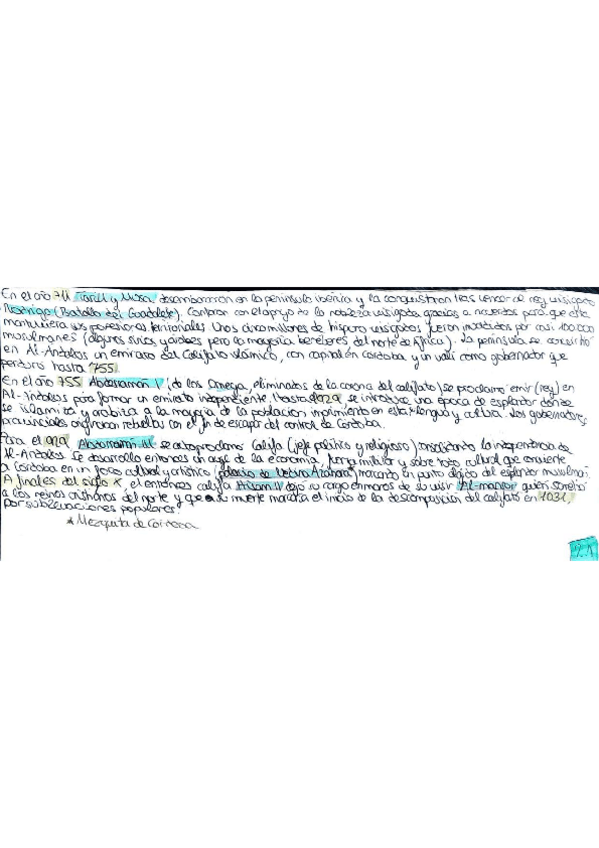 En el año 711 Tarik y Musa desembarcaron en la península ibérica y la conquistaron tras vencer al rey visigodo
Rodrigo (Batalla del Guadalete). Contaron con el apoyo de la nobleza visigoda gracias a acuerdos para que esta
mantuviera sus posesiones territoriales. Unos cinco millones de hispano visigodos fueron invadidos por casi 100.000
musulmanes (algunos sirios y árabes pero la mayoría bereberes del norte de África). La península se convirtió
en Al-Ándalus un emirato del Califato islámico, con capital en Córdoba y un valí como gobernador que
perduró hasta 755.
En el año 755 Abderramán I (de los Omeya, eliminados de la corona del califato) se proclamo emir (rey) en
Al-Ándalus para formar un emirato independiente. Hasta 929, se introduce una época de esplendor donde
se islamiza y arabiza a la mayoría de la población imprimiendo en esta lengua y cultura. Los gobernadores
provinciales originaron rebeliones con el fin de escapar del control de Córdoba.
Para el 929 Abderramán III se autoproclamo Califa (jefe político y religioso) consolidando la independencia de
Al-Ándalus. Se desarrollo entonces un auge de la economía, fuerza militar y sobre todo cultural que convierte
a Córdoba en un foco cultural y artístico (palacio de Medina Azahara) marcando un punto álgido del esplendor musulmán.
A finales del siglo X, el entonces califa Hisam II dejó su cargo en manos de su visir Al-manzor quien sometió
a los reinos cristianos del norte y que a su muerte marcaría el inicio de la descomposición del califato en 1031,
por sublevaciones populares.
* Mezquita de Córdoba
2.1